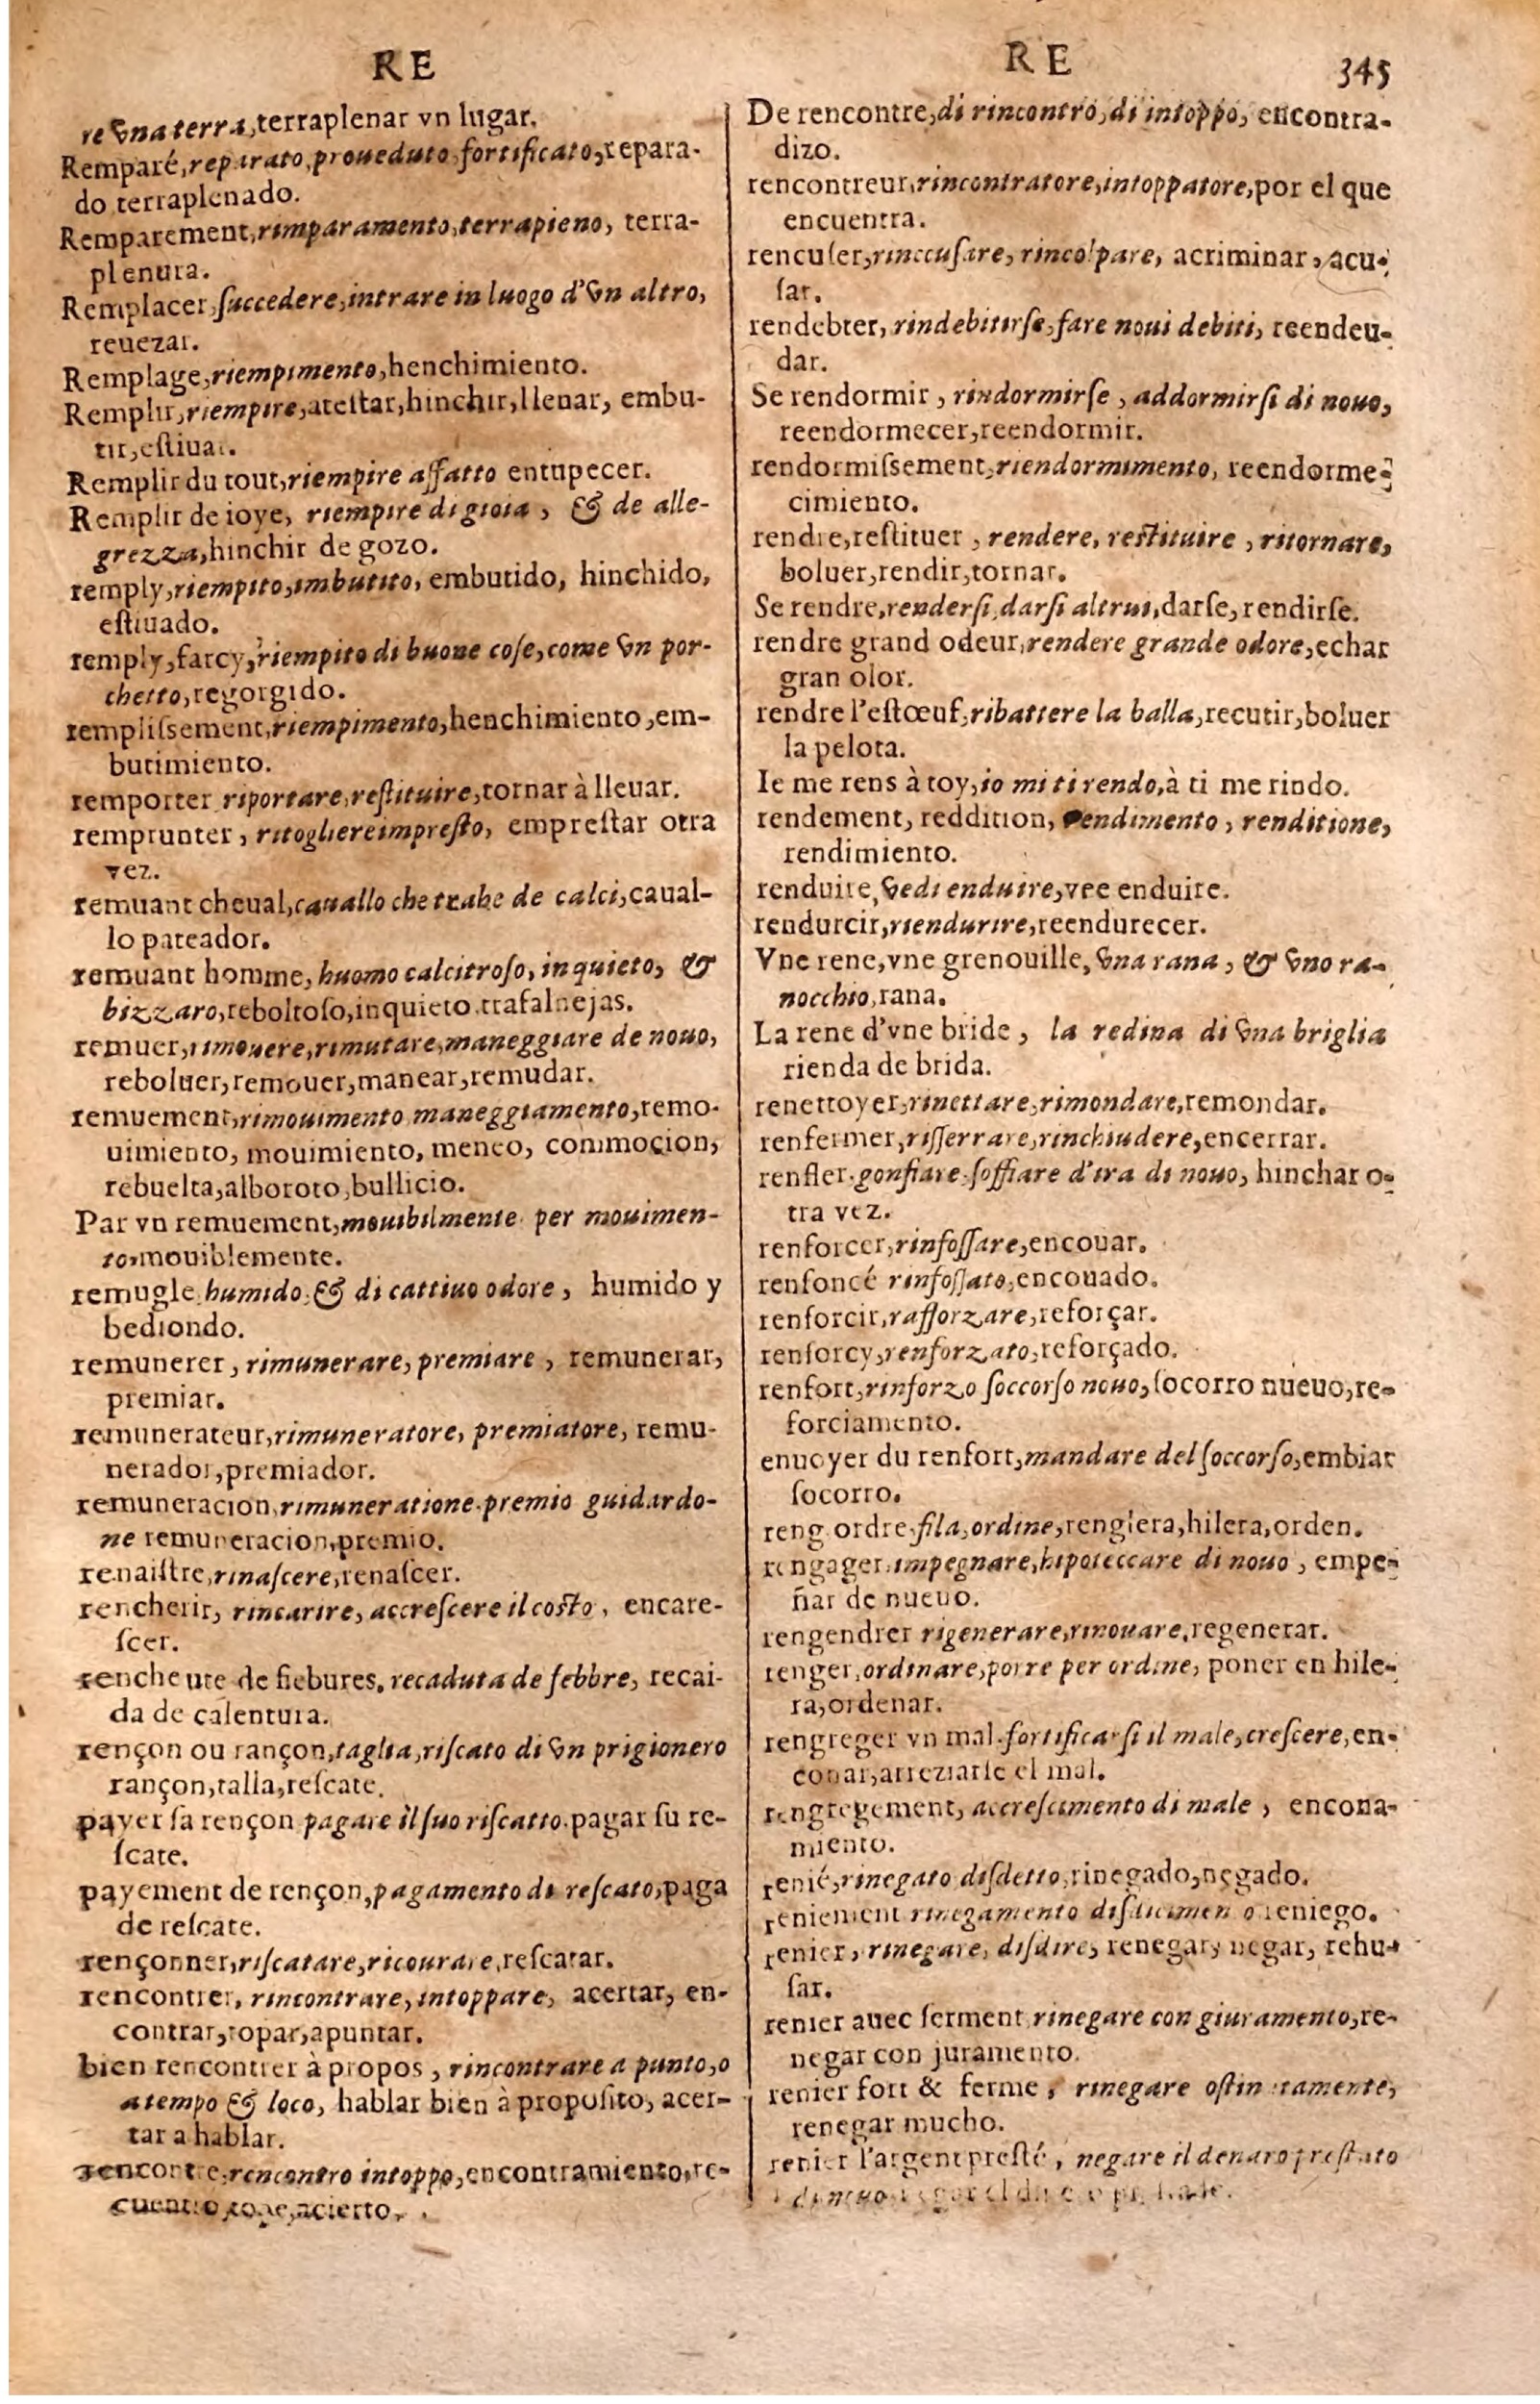 RE
re vna terra, terraplenar vn lugar.
Remparé, reparato, proueduto, fortificato, repara-
do terraplenado.
Remparement, rimparamento, terrapieno, terra-
plenura.
Remplacer, succedere, intrare in luogo d'vn altro,
reuezar.
Remplage, riempimento, henchimiento.
Remplir, riempire, atestar, hinchir, llenar, embu-
tir, estiuar.
Remplir du tout, riempire affatto entupecer.
Remplir de ioye, riempire di gioia, & de alle-
grezza, hinchir de gozo.
remply, riempito, imbutito, embutido, hinchido,
estiuado.
remply, farcy, riempito di buone cose, come vn por-
chetto, regorgido.
remplissement, riempimento, henchimiento, em-
butimiento.
remporter riportare, restituire, tornar à lleuar.
remprunter, ritogliere impresto, emprestar otra
vez.
remuant cheual, cauallo che trahe de calci, caual-
lo pateador.
remuant homme, huomo calcitroso, inquieto, &
bizzaro, reboltoso, inquieto trafalnejas.
remuer, rimouere, rimutare, maneggiare de nouo,
reboluer, remouer, manear, remudar.
remuement, rimouimento maneggiamento, remo-
uimiento, mouimiento, meneo, commocion,
rebuelta, alboroto, bullicio.
Par vn remuement, mouibilmente per mouimen-
to, mouiblemente.
remugle humido, & di cattiuo odore, humido y
bediondo.
remunerer, rimunerare, premiare, remunerar,
premiar.
remunerateur, rimuneratore, premiatore, remu-
nerador, premiador.
remuneracion, rimuneratione premio guidardo-
ne remuneracion, premio.
renaistre, rinascere, renascer.
rencherir, rincarire, accrescere il costo, encare-
scer.
rencheute de fiebures, recaduta de febbre, recai-
da de calentura.
rençon ou rançon, taglia, riscato di vn prigionero
rançon, talla, rescate.
payer sa rençon pagare il suo riscatto. pagar su re-
scate.
payement de rençon, pagamento di rescato, paga
de rescate.
rençonner, riscatare, ricourare, rescatar.
rencontrer, rincontrare, intoppare, acertar, en-
contrar, topar, apuntar.
bien rencontrer à propos, rincontrare a punto, o
a tempo & loco, hablar bien à proposito, acer-
tar a hablar.
rencontre, rencontro intoppo, encontramiento, re-
cuentro, tope, acierto.
RE 345
De rencontre, di rincontro, di intoppo, encontra-
dizo.
rencontreur, rincontratore, intoppatore, por el que
encuentra.
renculer, rinccusare, rincolpare, acriminar, acu-
sar.
rendebter, rindebitirse, fare noui debiti, reendeu-
dar.
Se rendormir, rindormirse, addormirsi di nouo,
reendormecer, reendormir.
rendormissement, riendormimento, reendorme-
cimiento.
rendre, restituer, rendere, restituire, ritornare,
boluer, rendir, tornar.
Se rendre, rendersi, darsi altrui, darse, rendirse.
rendre grand odeur, rendere grande odore, echar
gran olor.
rendre l'estœuf, ribattere la balla, recutir, boluer
la pelota.
Ie me rens à toy, io mi ti rendo, à ti me rindo.
rendement, reddition, rendimento, renditione,
rendimiento.
renduire, vedi enduire, vee enduire.
rendurcir, riendurire, reendurecer.
Vne rene, vne grenouille, vna rana, & vno ra-
nocchio, rana.
La rene d'vne bride, la redina di vna briglia
rienda de brida.
renettoyer, rinettare, rimondare, remondar.
renfermer, risserrare, rinchiudere, encerrar.
renfler. gonfiare. soffiare d'ira di nouo, hinchar o-
tra vez.
renforcer, rinfossare, encouar.
renfoncé rinfossato, encouado.
renforcir, rafforzare, reforçar.
renforcy, renforzato, reforçado.
renfort, rinforzo soccorso nouo, socorro nueuo, re-
forciamento.
enuoyer du renfort, mandare del soccorso, embiar
socorro.
reng ordre, fila, ordine, renglera, hilera, orden.
rengager impegnare, hipoteccare di nouo, empe-
ñar de nueuo.
rengendrer rigenerare, rinouare, regenerar.
renger, ordinare, porre per ordine, poner en hile-
ra, ordenar.
rengreger vn mal. fortificarsi il male, crescere, en-
conar, arreziarse el mal.
rengregement, accrescimento di male, encona-
miento.
renié, rinegato disdetto, rinegado, negado.
reniement rinegamento reniego.
renier, rinegare, disdire, renegar, negar, rehu-
sar.
renier auec serment, rinegare con giuramento, re-
negar con juramento.
renier fort & ferme, rinegare ostinatamente,
renegar mucho.
renier l'argent presté, negare il denaro prestato